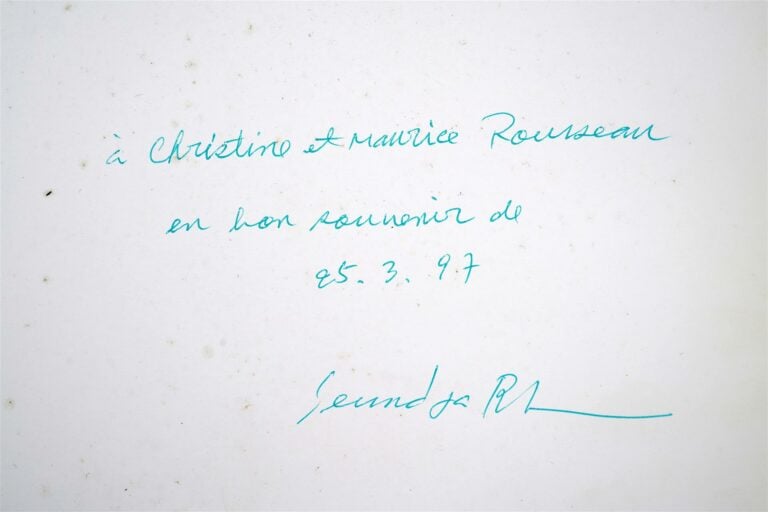 à Christine et Maurice Rousseau
en bon souvenir de
25. 3. 97
Seundja Rh